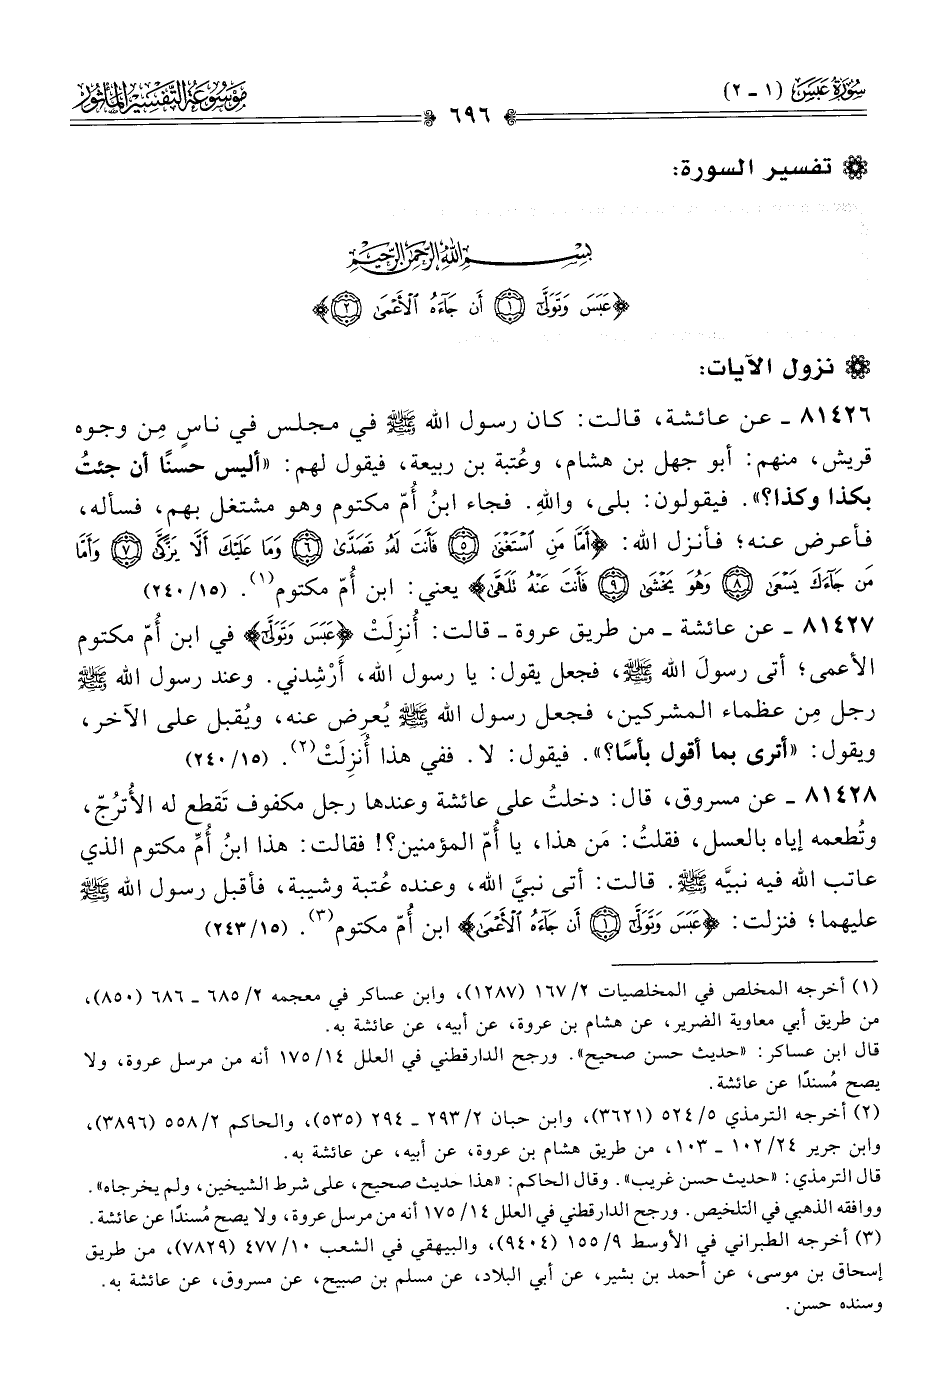 سُورَةُ عَبَسَ (١ - ٢)
٦٩٦
مَوْسُوعَة التَّفْسِيْرِ المَأثُور
تفسير السورة:
بِسْمِ اللَّهِ الرَّحْمَٰنِ الرَّحِيمِ
﴿عَبَسَ وَتَوَلَّىٰٓ ۝١ أَن جَآءَهُ ٱلْأَعْمَىٰ ۝٢﴾
نزول الآيات:
٨١٤٢٦ ـ عن عائشة، قالت: كان رسول الله ﷺ في مجلس في ناسٍ مِن وجوه
قريش، منهم: أبو جهل بن هشام، وعُتبة بن ربيعة، فيقول لهم: «أليس حسنًا أن جئتُ
بكذا وكذا؟». فيقولون: بلى، واللهِ. فجاء ابنُ أُمّ مكتوم وهو مشتغل بهم، فسأله،
فأعرض عنه؛ فأنزل الله: ﴿أَمَّا مَنِ ٱسْتَغْنَىٰ ۝٥ فَأَنتَ لَهُۥ تَصَدَّىٰ ۝٦ وَمَا عَلَيْكَ أَلَّا يَزَّكَّىٰ ۝٧ وَأَمَّا
مَن جَآءَكَ يَسْعَىٰ ۝٨ وَهُوَ يَخْشَىٰ ۝٩ فَأَنتَ عَنْهُ تَلَهَّىٰ﴾ يعني: ابن أُمّ مكتوم(١). (١٥/ ٢٤٠)
٨١٤٢٧ ـ عن عائشة ـ من طريق عروة ـ قالت: أُنزِلَتْ ﴿عَبَسَ وَتَوَلَّىٰٓ﴾ في ابن أُمّ مكتوم
الأعمى؛ أتى رسولَ الله ﷺ، فجعل يقول: يا رسول الله، أَرْشِدني. وعند رسول الله ﷺ
رجل مِن عظماء المشركين، فجعل رسول الله ﷺ يُعرض عنه، ويُقبل على الآخر،
ويقول: «أترى بما أقول بأسًا؟». فيقول: لا. ففي هذا أُنزِلَتْ(٢). (١٥/ ٢٤٠)
٨١٤٢٨ ـ عن مسروق، قال: دخلتُ على عائشة وعندها رجل مكفوف تَقطع له الأُترُجّ،
وتُطعمه إياه بالعسل، فقلتُ: مَن هذا، يا أُمّ المؤمنين؟! فقالت: هذا ابنُ أُمِّ مكتوم الذي
عاتب الله فيه نبيَّه ﷺ. قالت: أتى نبيَّ الله، وعنده عُتبة وشيبة، فأقبل رسول الله ﷺ
عليهما؛ فنزلت: ﴿عَبَسَ وَتَوَلَّىٰٓ ۝١ أَن جَآءَهُ ٱلْأَعْمَىٰ﴾ ابن أُمّ مكتوم(٣). (١٥/ ٢٤٣)
(١) أخرجه المخلص في المخلصيات ٢/ ١٦٧ (١٢٨٧)، وابن عساكر في معجمه ٢/ ٦٨٥ ـ ٦٨٦ (٨٥٠)،
من طريق أبي معاوية الضرير، عن هشام بن عروة، عن أبيه، عن عائشة به.
قال ابن عساكر: «حديث حسن صحيح». ورجح الدارقطني في العلل ١٤/ ١٧٥ أنه من مرسل عروة، ولا
يصح مُسندًا عن عائشة.
(٢) أخرجه الترمذي ٥/ ٥٢٤ (٣٦٢١)، وابن حبان ٢/ ٢٩٣ ـ ٢٩٤ (٥٣٥)، والحاكم ٢/ ٥٥٨ (٣٨٩٦)،
وابن جرير ٢٤/ ١٠٢ ـ ١٠٣، من طريق هشام بن عروة، عن أبيه، عن عائشة به.
قال الترمذي: «حديث حسن غريب». وقال الحاكم: «هذا حديث صحيح، على شرط الشيخين، ولم يخرجاه».
ووافقه الذهبي في التلخيص. ورجح الدارقطني في العلل ١٤/ ١٧٥ أنه من مرسل عروة، ولا يصح مُسندًا عن عائشة.
(٣) أخرجه الطبراني في الأوسط ٩/ ١٥٥ (٩٤٠٤)، والبيهقي في الشعب ١٠/ ٤٧٧ (٧٨٢٩)، من طريق
إسحاق بن موسى، عن أحمد بن بشير، عن أبي البلاد، عن مسلم بن صبيح، عن مسروق، عن عائشة به.
وسنده حسن.